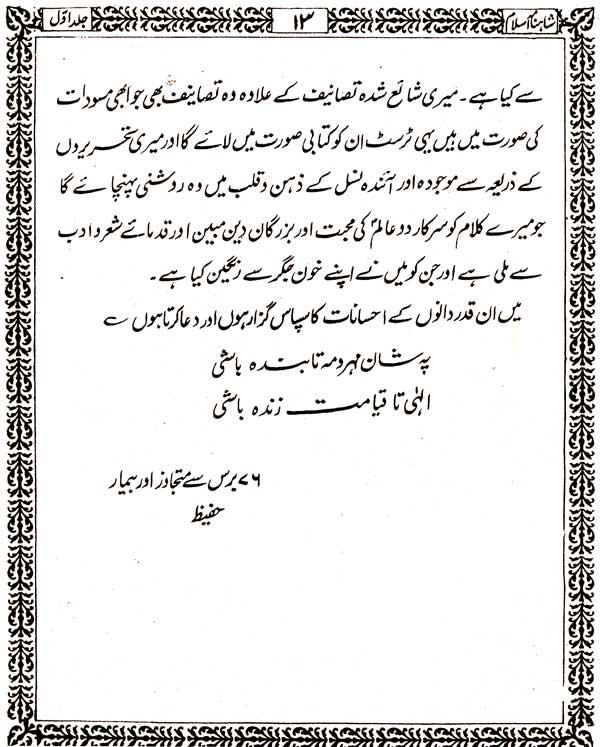 شاہنامۂ اسلام ۱۳ جلد اوّل
سے کیا ہے۔ میری شائع شدہ تصانیف کے علاوہ وہ تصانیف بھی جو ابھی مسودات
کی صورت میں ہیں یہی ٹرسٹ ان کو کتابی صورت میں لائے گا اور میری تحریروں
کے ذریعہ سے موجودہ اور آئندہ نسل کے ذہن و قلب میں وہ روشنی پہنچائے گا
جو میرے کلام کو سرکار دو عالمؐ کی محبت اور بزرگان دین مبین اور قدمائے شعر و ادب
سے ملی ہے اور جن کو میں نے اپنے خون جگر سے رنگین کیا ہے۔
میں ان قدر دانوں کے احسانات کا سپاس گزار ہوں اور دعا کرتا ہوں ؎
بہ شان مہر و مہ تابندہ باشی
الٰہی تا قیامت زندہ باشی
۷۶ برس سے متجاوز اور بیمار
حفیظ